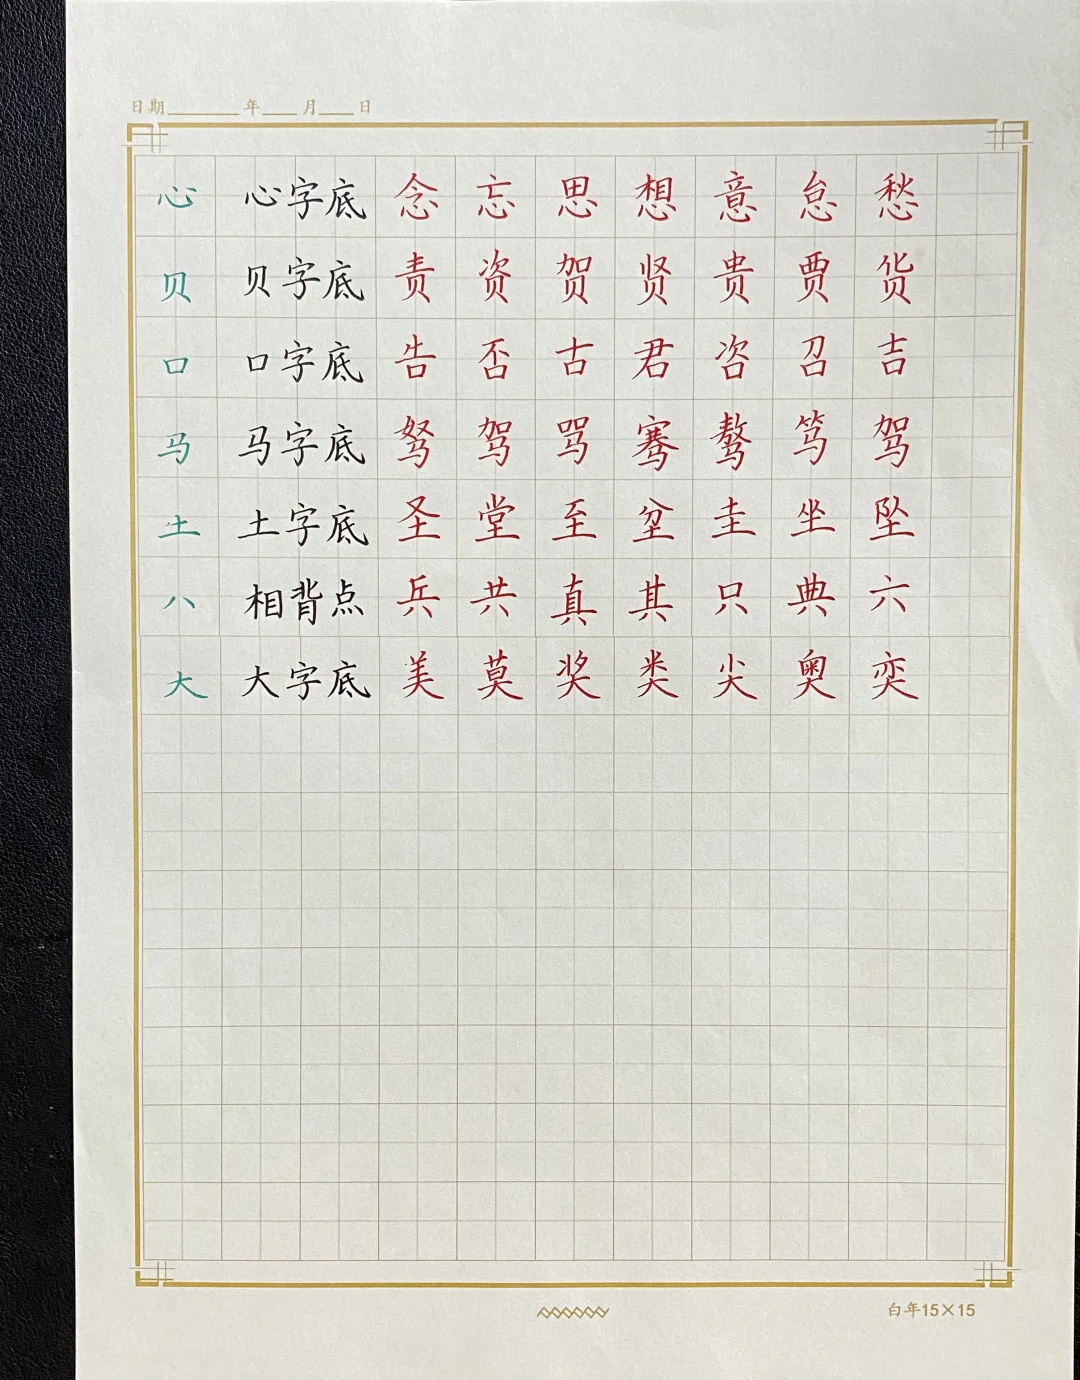 日期 年 月 日
心 心字底 念 忘 思 想 意 怠 愁
贝 贝字底 责 资 贺 贤 贵 贾 货
口 口字底 告 否 古 君 咨 召 吉
马 马字底 驽 驾 骂 骞 骜 笃 驾
土 土字底 圣 堂 至 坌 圭 坐 坠
八 相背点 兵 共 真 其 只 典 六
大 大字底 美 莫 奖 类 尖 奥 奕
白年15×15